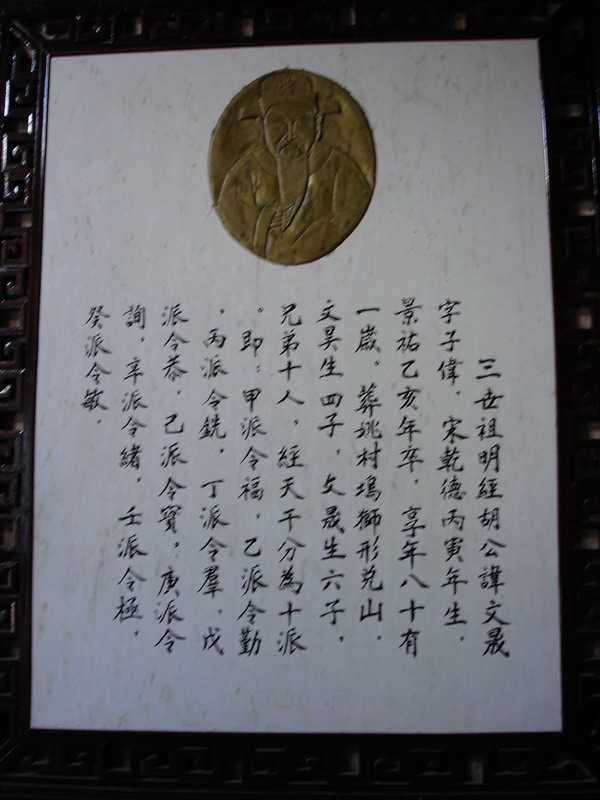 三世祖明經胡公諱文晟
字子偉，宋乾德丙寅年生，
景祐乙亥年卒，享年八十有
一歲。葬姚村塢獅形兑山。
文昊生四子，文晟生六子，
兄弟十人，經天干分為十派
。即：甲派令福，乙派令勤
，丙派令銑，丁派令羣，戊
派令恭，己派令寳，庚派令
詢，辛派令緒，壬派令極，
癸派令敏．